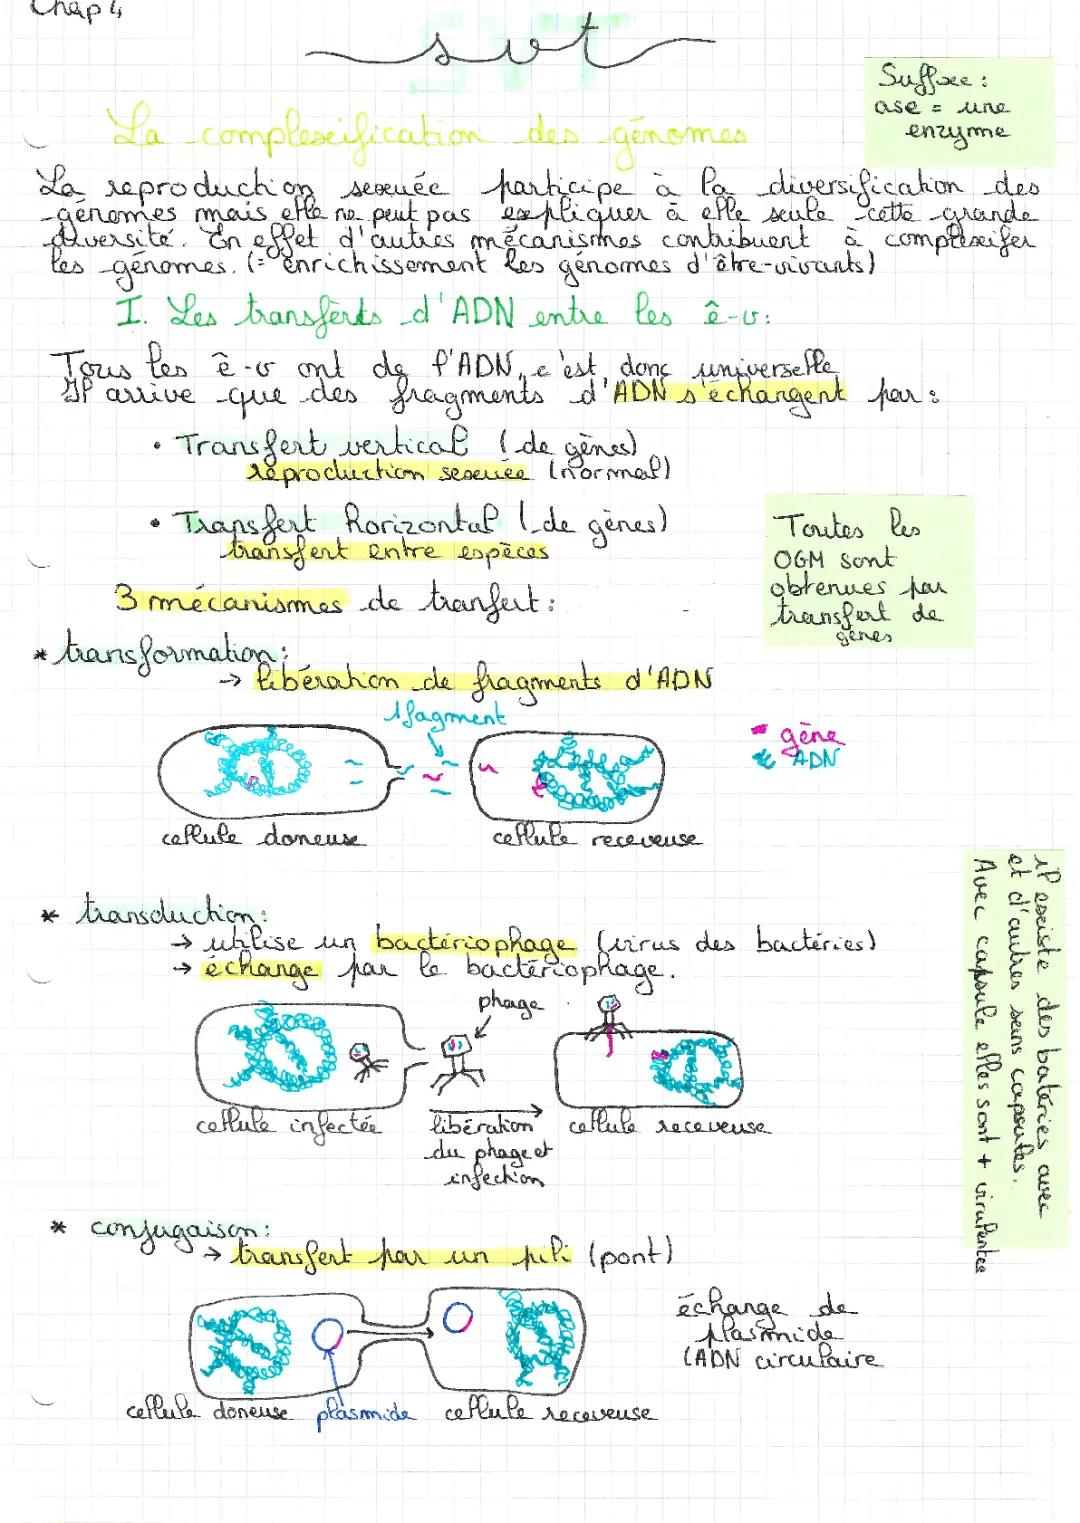 Chap 4
SVT
svt
Suffixe :
ase = une
enzyme
La complexification des génomes
La reproduction sexuée participe à la diversification des
génomes mais elle ne peut pas expliquer à elle seule cette grande
diversité. En effet d'autres mécanismes contribuent à complexifer
les génomes. (= enrichissement les génomes d'être-vivants)
I. Les transferts d'ADN entre les ê-v:
Tous les ê-v ont de l'ADN, c'est donc universelle
Il arrive que des fragments d'ADN s'échangent par :
• Transfert vertical (de gènes)
reproduction sexuée (normal)
• Transfert horizontal (de gènes)
transfert entre espèces
Toutes les
OGM sont
obtenues par
transfert de
gènes
3 mécanismes de tranfert :
* transformation :
→ libération de fragments d'ADN
1 fagment
gène
ADN
cellule doneuse
cellule receveuse
il existe des batéries avec
et d'autres sans capsules.
Avec capsule elles sont + virulentes
* transduction :
→ utilise un bactériophage (virus des bactéries)
→ échange par le bactériophage.
phage
cellule infectée
libération
du phage et
infection
cellule receveuse
* conjugaison :
→ transfert par un pili (pont)
échange de
plasmide
(ADN circulaire
cellule doneuse
plasmide
cellule receveuse